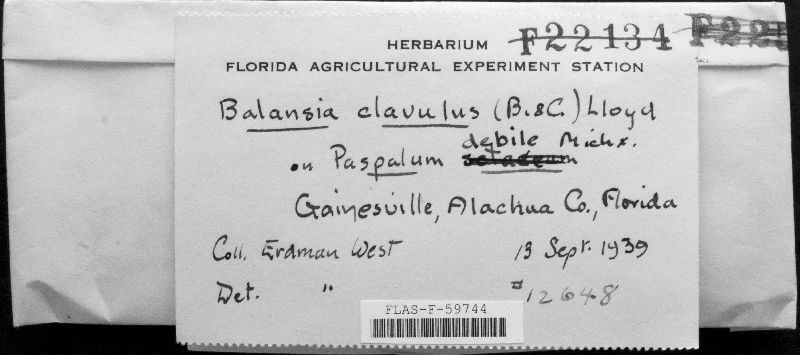 HERBARIUM F22134
FLORIDA AGRICULTURAL EXPERIMENT STATION
Balansia clavulus (B.&C.) Lloyd
debile Michx.
on Paspalum setaceum
Gainesville, Alachua Co., Florida
Coll. Erdman West 13 Sept. 1939
Det. " #12648
FLAS-F-59744